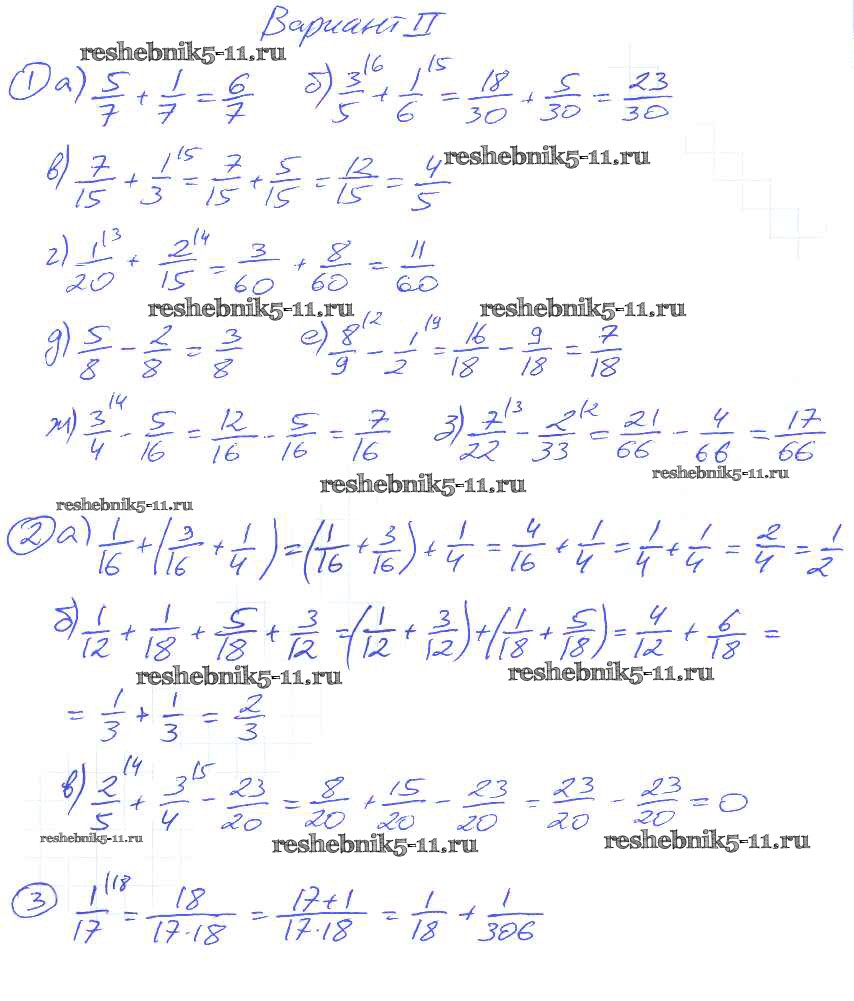 Вариант II
reshebnik5-11.ru
① а) 5/7 + 1/7 = 6/7   б) 3/5 |6 + 1/6 |5 = 18/30 + 5/30 = 23/30
в) 7/15 + 1/3 |5 = 7/15 + 5/15 = 12/15 = 4/5
reshebnik5-11.ru
г) 1/20 |3 + 2/15 |4 = 3/60 + 8/60 = 11/60
reshebnik5-11.ru reshebnik5-11.ru
д) 5/8 - 2/8 = 3/8   е) 8/9 |2 - 1/2 |9 = 16/18 - 9/18 = 7/18
ж) 3/4 |4 - 5/16 = 12/16 - 5/16 = 7/16   з) 7/22 |3 - 2/33 |2 = 21/66 - 4/66 = 17/66
reshebnik5-11.ru reshebnik5-11.ru
reshebnik5-11.ru
② а) 1/16 + (3/16 + 1/4) = (1/16 + 3/16) + 1/4 = 4/16 + 1/4 = 1/4 + 1/4 = 2/4 = 1/2
б) 1/12 + 1/18 + 5/18 + 3/12 = (1/12 + 3/12) + (1/18 + 5/18) = 4/12 + 6/18 =
reshebnik5-11.ru reshebnik5-11.ru
= 1/3 + 1/3 = 2/3
в) 2/5 |4 + 3/4 |5 - 23/20 = 8/20 + 15/20 - 23/20 = 23/20 - 23/20 = 0
reshebnik5-11.ru reshebnik5-11.ru reshebnik5-11.ru
③ 1/17 |18 = 18/17·18 = 17+1/17·18 = 1/18 + 1/306